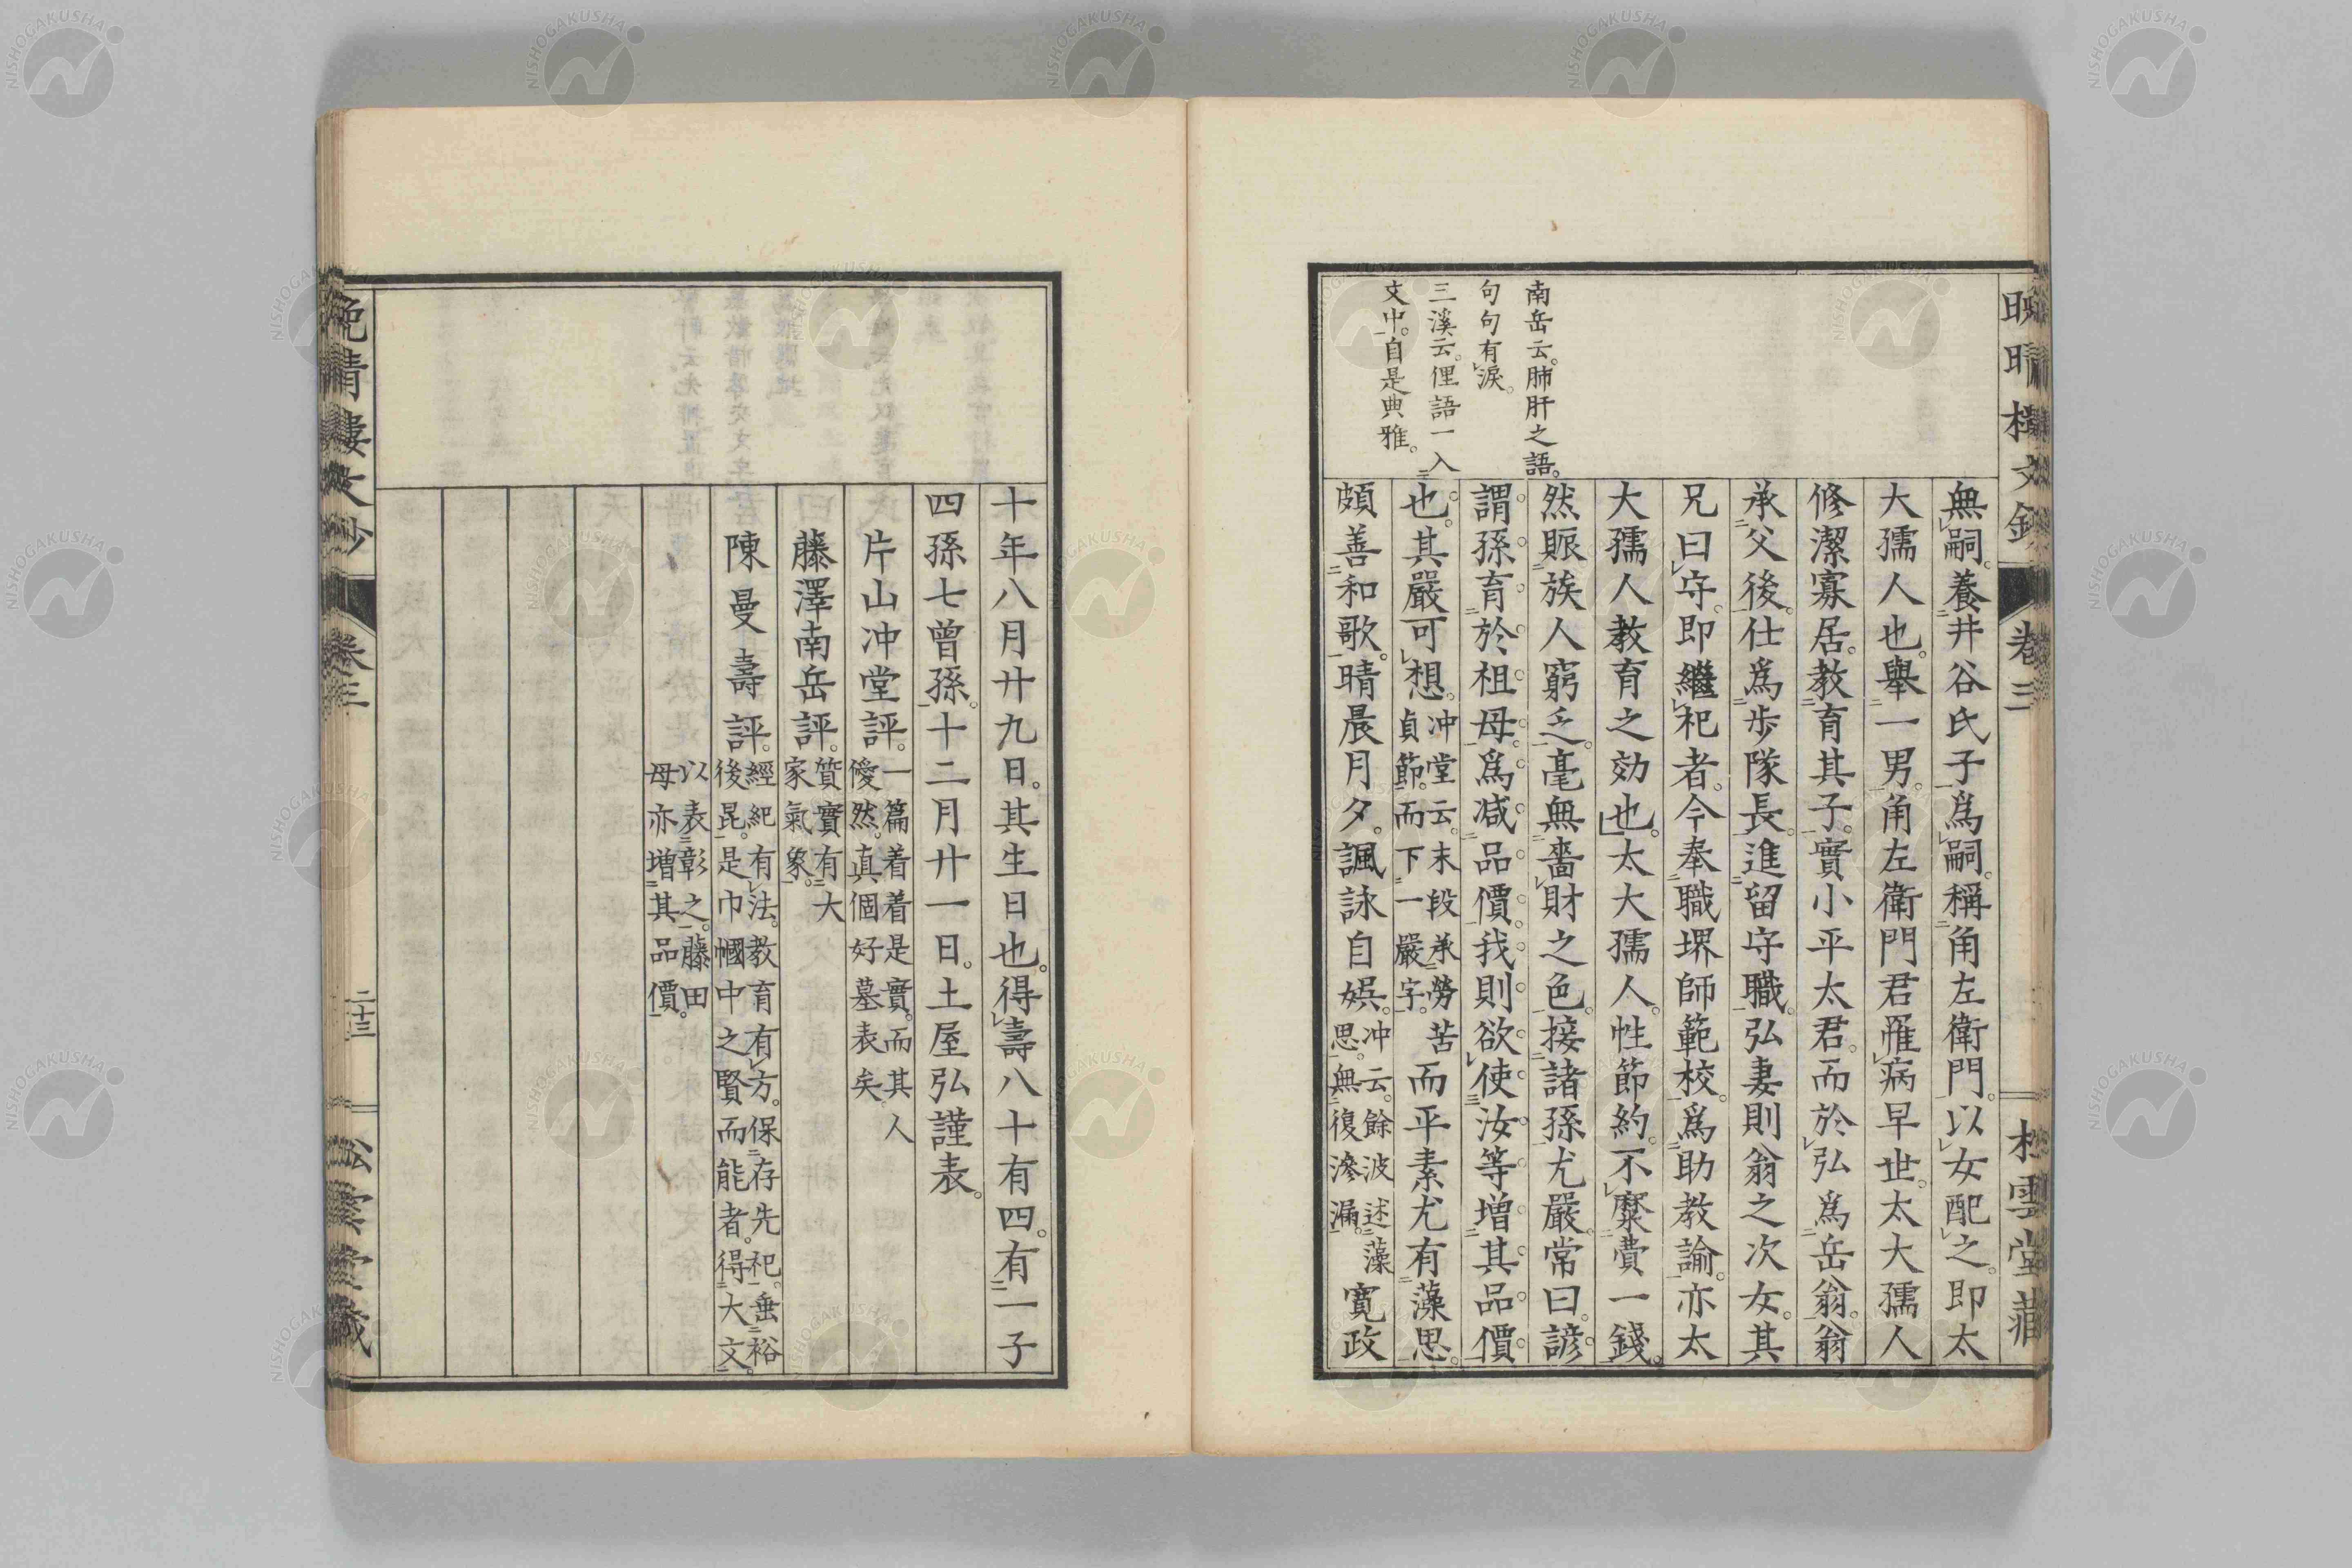 晩晴樓文鈔
卷三
松雲堂藏
南岳云。肺肝之語。
句句有淚。
三溪云。俚語一入
文中。自是典雅。
無嗣。養井谷氏子爲嗣。稱角左衛門。以女配之。即太
大孺人也。舉一男。角左衛門君罹病早世。太大孺人
修潔寡居。教育其子。實小平太君。而於弘爲岳翁。翁
承父後。仕爲歩隊長。進留守職。弘妻則翁之次女。其
兄曰守。即繼祀者。今奉職堺師範校。爲助教諭。亦太
大孺人教育之効也。太大孺人。性節約。不糜費一錢。
然賑族人窮乏。毫無嗇財之色。接諸孫尤嚴。常曰。諺
謂孫育於祖母。爲减品價。我則欲使汝等增其品價
也。其嚴可想。冲堂云。末段承勞苦
貞節。而下一嚴字。而平素尤有藻思。
頗善和歌。晴晨月夕。諷詠自娯。冲云。餘波述藻
思。無復滲漏。寛政
十年八月廿九日。其生日也。得壽八十有四。有一子
四孫七曾孫。十二月廿一日。土屋弘謹表。
片山冲堂評。一篇着着是實。而其人
優然。真個好墓表矣。
藤澤南岳評。質實有大
家氣象。
陳曼壽評。經紀有法。教育有方。保存先祀。垂裕
後昆。是巾幗中之賢而能者。得大文。
以表彰之。藤田
母亦增其品價。
晩晴樓文鈔
卷三
二十三
松雲堂藏